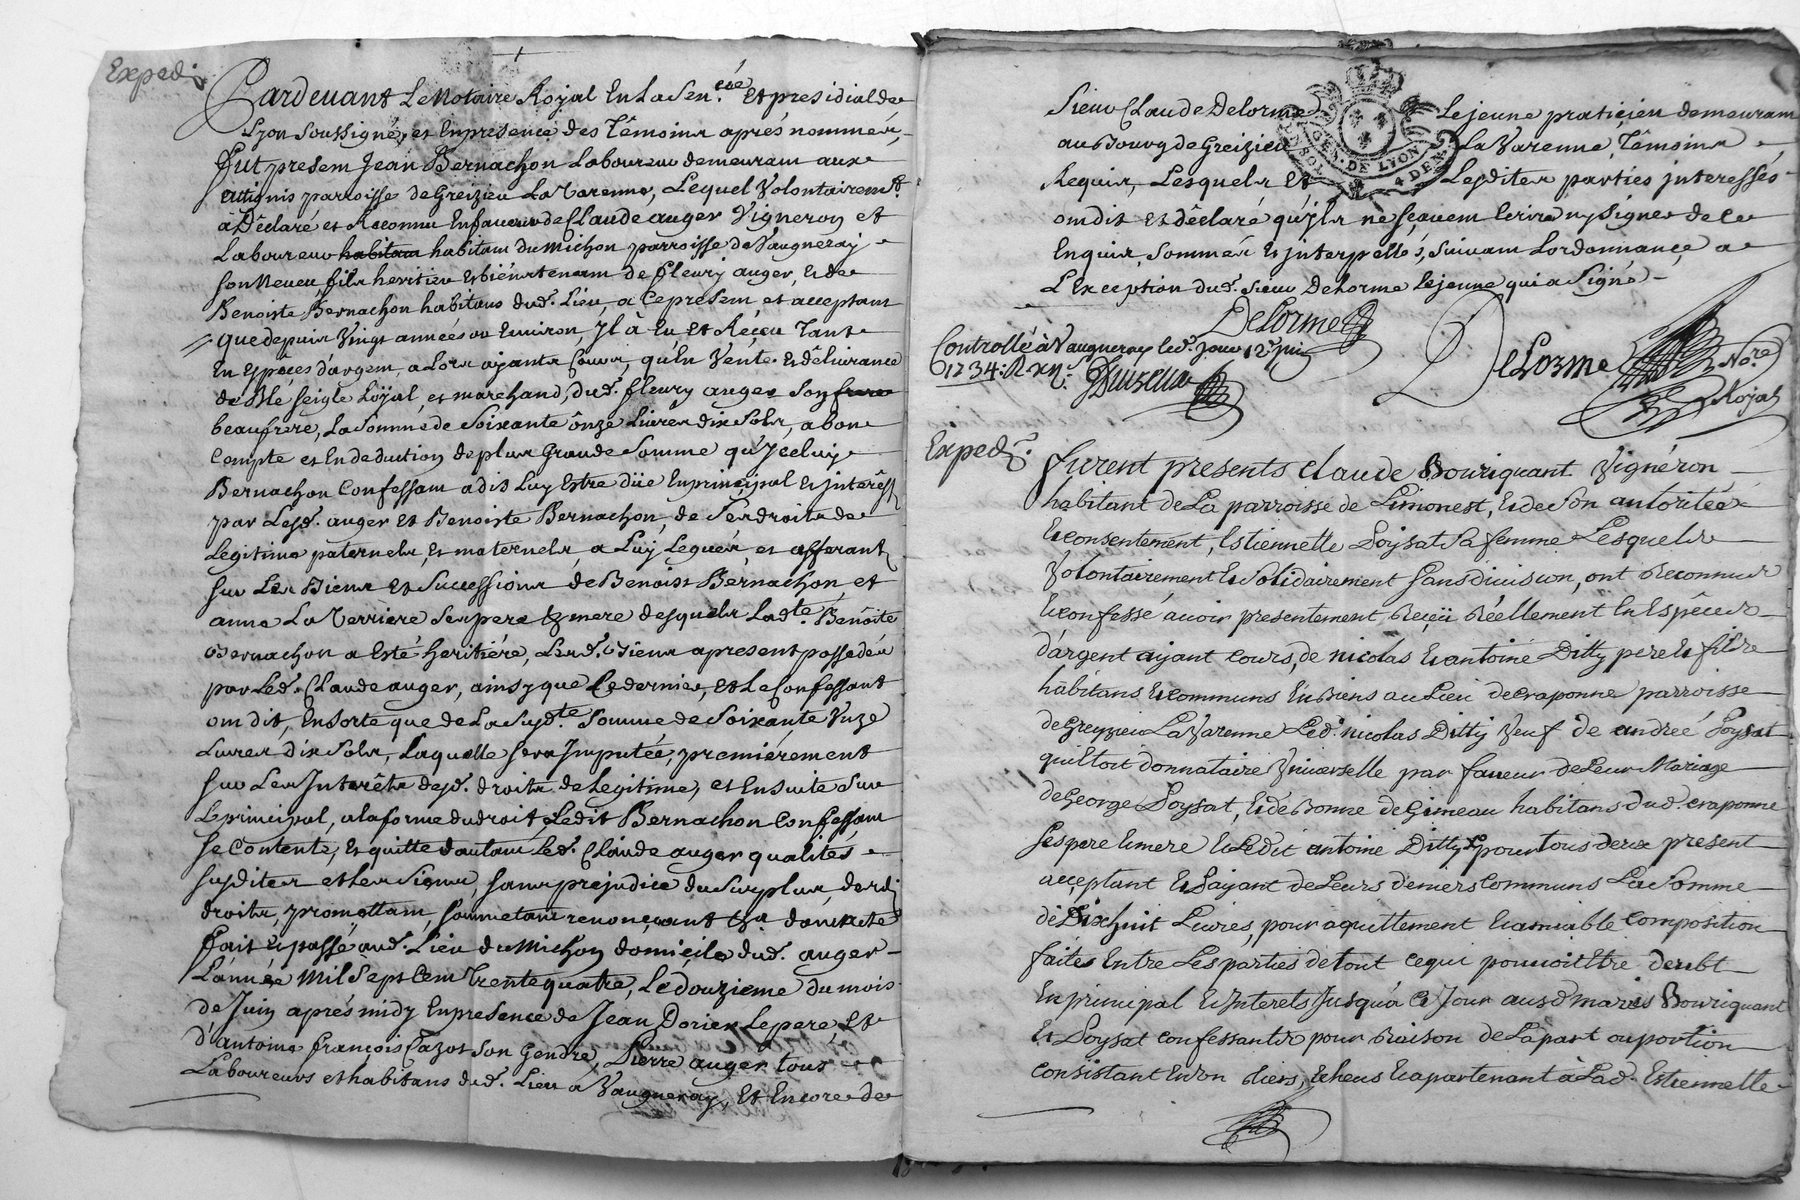 Expedié
Pardevant Le Notaire Royal En La Sen.cée Et presidial de
Lyon Soussigné, et En presence des Têmoins aprés nommés,
Fut present Jean Bernachon Laboureur demeurant aux
attignis parroisse de Greizieu La Varenne, Lequel Volontairemt.
à Déclaré et Reconnu En faveur de Claude auger Vigneron et
Laboureur habitant habitant du Michon parroisse de Vaugneray
son Neveu, fils heritier Et bien tenant de fleury auger, Et de
Benoiste Bernachon habitans dud. Lieu, a Ce present et acceptant
que depuis Vingt années ou Environ, Jl à Eu Et Réçeu Tant
En Espéces d'argent, a Lors ayants Cours, qu'En Vente Et délivrance
de Blé seigle Löyal, et marchand, dud. fleury auger Son frere
beaufrere, La Somme de Soixante ônze Livres dix Sols, a bon
Compte et En deduction de plus Grande Somme qu'Jceluy
Bernachon Confessant a dit Luy Estre düe En principal Et jnterêst
par Lesd. auger Et Benoiste Bernachon, de Ses droits de
Legitime paternels, Et maternels, a Luy Legués, et afferants
sur Les Biens et Successions de Benoist Bernachon, et
anne La Verriere Ses pere & mere desquels Ladte. Benôite
Bernachon a Esté heritiére, Lesd. Biens a present possedés
par Led. Claude auger, ainsy que Ce dernier, Et Le Confessant
ont dit, En Sorte que de La Susdte. Somme de Soixante Unze
Livres dix Sols, Laquelle sera Jmputée, premiérement
sur Les Jnterêts desd. droits de Legitime, et Ensuite Sur
Le principal, a la forme du droit, Ledit Bernachon Confessant
se Contente, Et quitte d'autant Led. Claude auger qualités
susdites et Les Siens, sans prejudice du Surplus, desd.
droits, promettant, soumettant renonçeant &a. dont acte
Fait Et passé aud. Lieu du Michon domicile dud. auger
L'année Mil Sept Cent Trente quatre, Le douzieme du mois
de Juin aprés midy En presence de Jean Dorier Le pere, Et
d'antoine François Cazot Son Gendre, Pierre auger tous
Laboureurs et habitans dud. Lieu a Vaugneray, Et Encore de
Sieur Claude Delorme Le jeune praticien demeurant
au Bourg de Greizieu La Varenne, Têmoins
Requis, Lesquels Et Lesdites parties jnteressés
GEN. DE LYON
4 DEN.
ont dit et dêclaré qu'jls ne sçavent Ecrire ny signer de ce
Enquis, Sommés Et jnterpellés, Suivant Lordonnance, a
L'Exception dud. Sieur Delorme Le jeune qui a Signé
Delorme
Controllé à Vaugneray led. jour 12e. juin
1734: R. xij s.
DeLorme No.re
Royal
Expedié.
furent presents Claude Bouriquant Vignéron
habitant de La parroisse de Limonest, Et de Son autoritée
Et consentement, Estiennette Soysat Sa femme Lesquels
Volontairement Et Solidairement sans division, ont Reconnus
Et confessé avoir presentement Reçeü Réellement En Espêces
d'argent ayant cours, de nicolas Et antoine Ditty pere Et fils
habitans Et communs En Biens au Lieu de craponne parroisse
de Greyzieu La Varenne Led. nicolas Ditty Veuf de andreé Soysat
quil Etoit donnataire Vniverselle par faveur de Leur Mariage
de George Soysat, Et de Bonne de Gimeau habitans dud. craponne
ses pere Et mere Et Ledit antoine Ditty pour tous deux present
acceptant Et Payant de Leurs deniers communs La Somme
de Dixhuit Livres, pour aquittement Et amiable composition
faites Entre Les parties de tout ce qui pouvoit Etre deubt
En principal Et Jnterets Jusqu'a Ce Jour ausd. mariés Bouriquant
Et Soysat confessants pour Raison de La part ou portion
consistant En Eschens Et apartenant à Lad. Estiennette